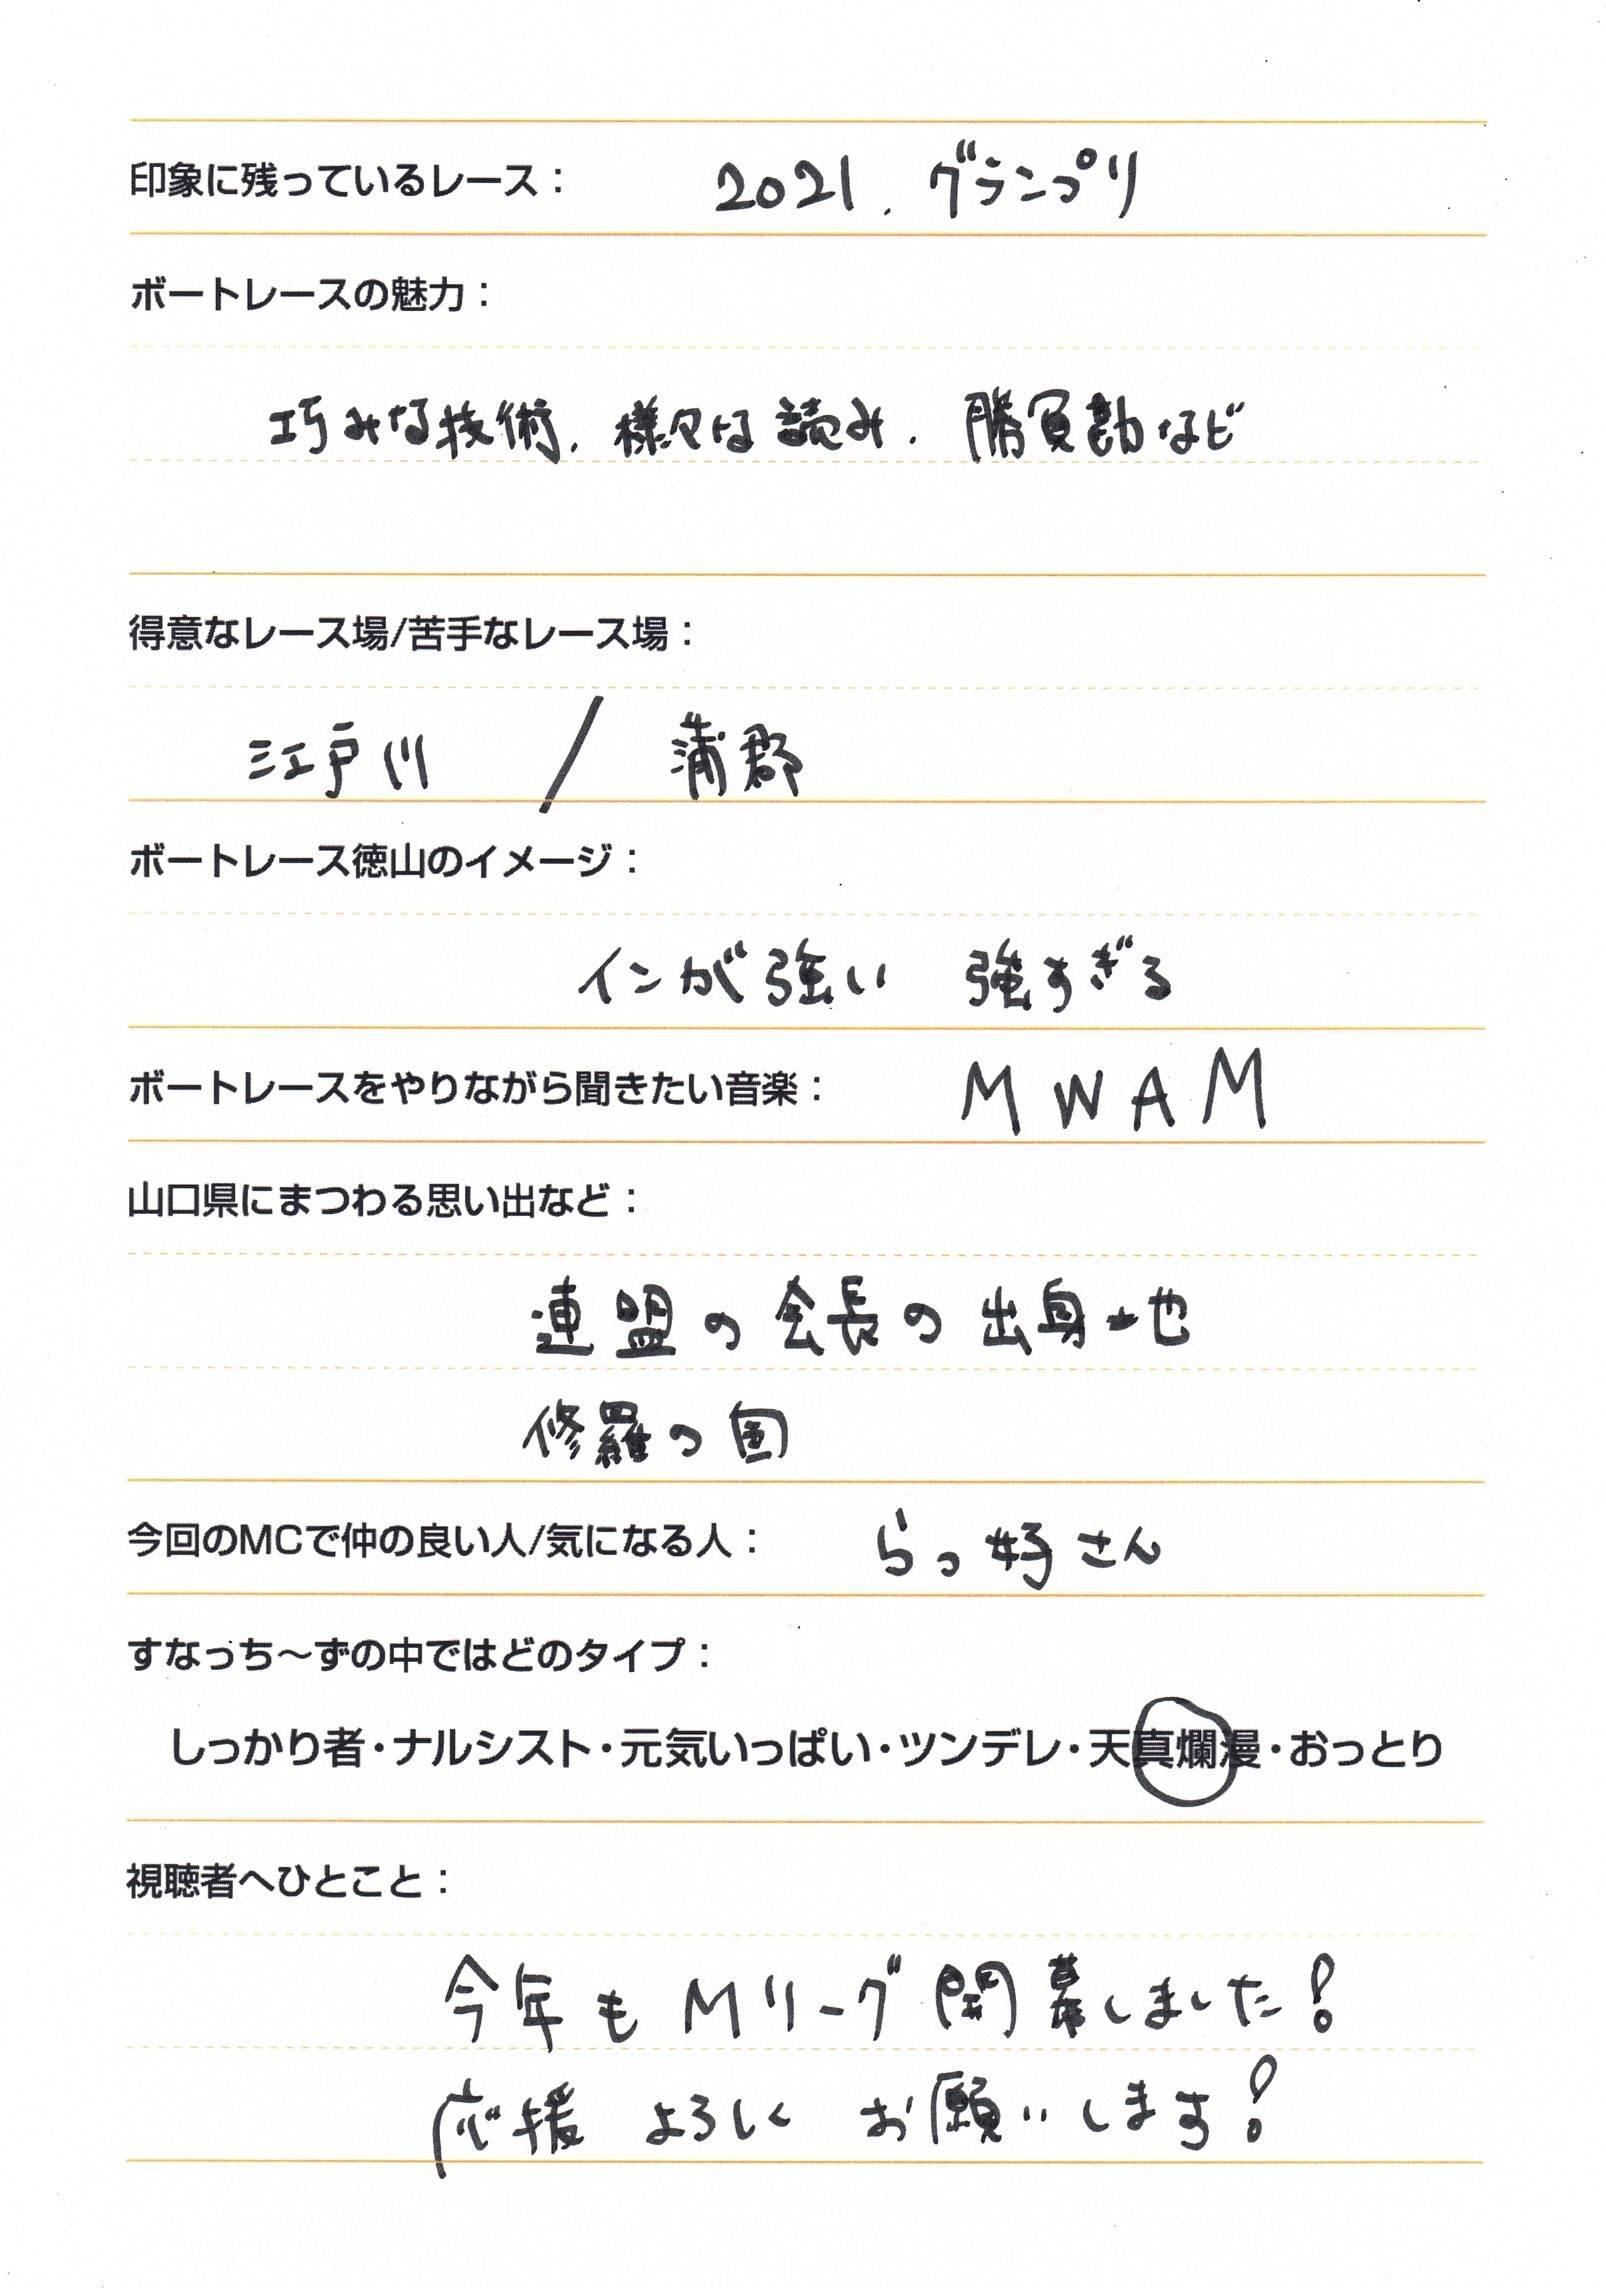 印象に残っているレース： 2021. グランプリ
ボートレースの魅力：
巧みな技術、様々な読み、勝負勘など
得意なレース場/苦手なレース場：
江戸川 / 蒲郡
ボートレース徳山のイメージ：
インが強い 強すぎる
ボートレースをやりながら聞きたい音楽： MWAM
山口県にまつわる思い出など：
連盟の会長の出身地
修羅の国
今回のMCで仲の良い人/気になる人： らっ好さん
すなっち～ずの中ではどのタイプ：
しっかり者・ナルシスト・元気いっぱい・ツンデレ・天真爛漫・おっとり
視聴者へひとこと：
今年もMリーグ開幕しました！
応援よろしくお願いします！